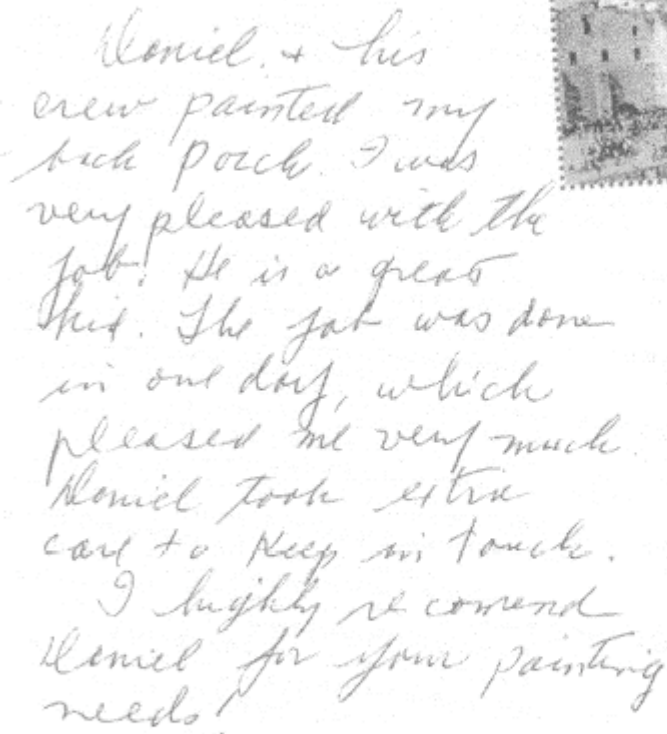 Daniel & his
crew painted my
back porch. I was
very pleased with the
job! He is a great
kid. The job was done
in one day, which
pleased me very much.
Daniel took extra
care to keep in touch.
I highly recomend
Daniel for your painting
needs!